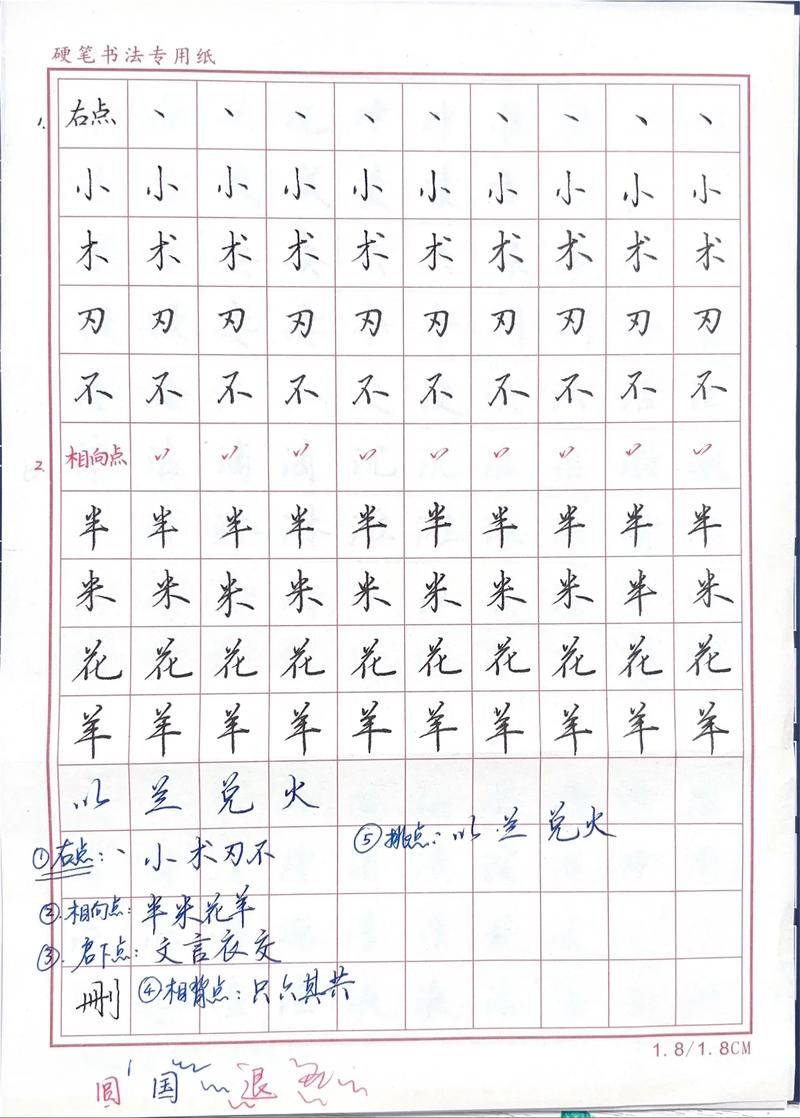 硬笔书法专用纸
1. 右点 丶 丶 丶 丶 丶 丶 丶 丶 丶
小 小 小 小 小 小 小 小 小 小
木 术 术 术 术 术 术 术 术 术
刃 刃 刃 刃 刃 刃 刃 刃 刃 刃
不 不 不 不 不 不 不 不 不 不
2. 相向点
半 半 半 半 半 半 半 半 半 半
米 米 米 米 米 米 米 米 半 米
花 花 花 花 花 花 花 花 花 花
羊 羊 羊 羊 羊 羊 羊 羊 羊 羊
以 兰 兑 火
①右点：丶 小 术 刃 不
⑤挑点：以 兰 兑 火
②.相向点：半 米 花 羊
③.居下点：文 言 衣 交
删 ④相背点：只 六 其 共
1.8/1.8CM
圆 国 退